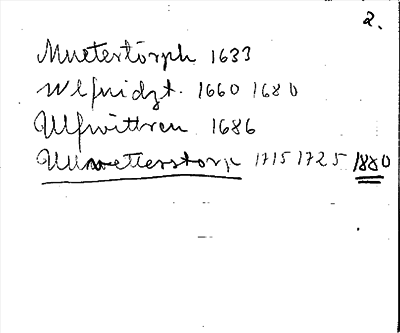 2.
Muetertörph 1633
Wlfnidzt. 1660 1680
Ulfwittren 1686
Ullwetterstorp 1715 1725 1880